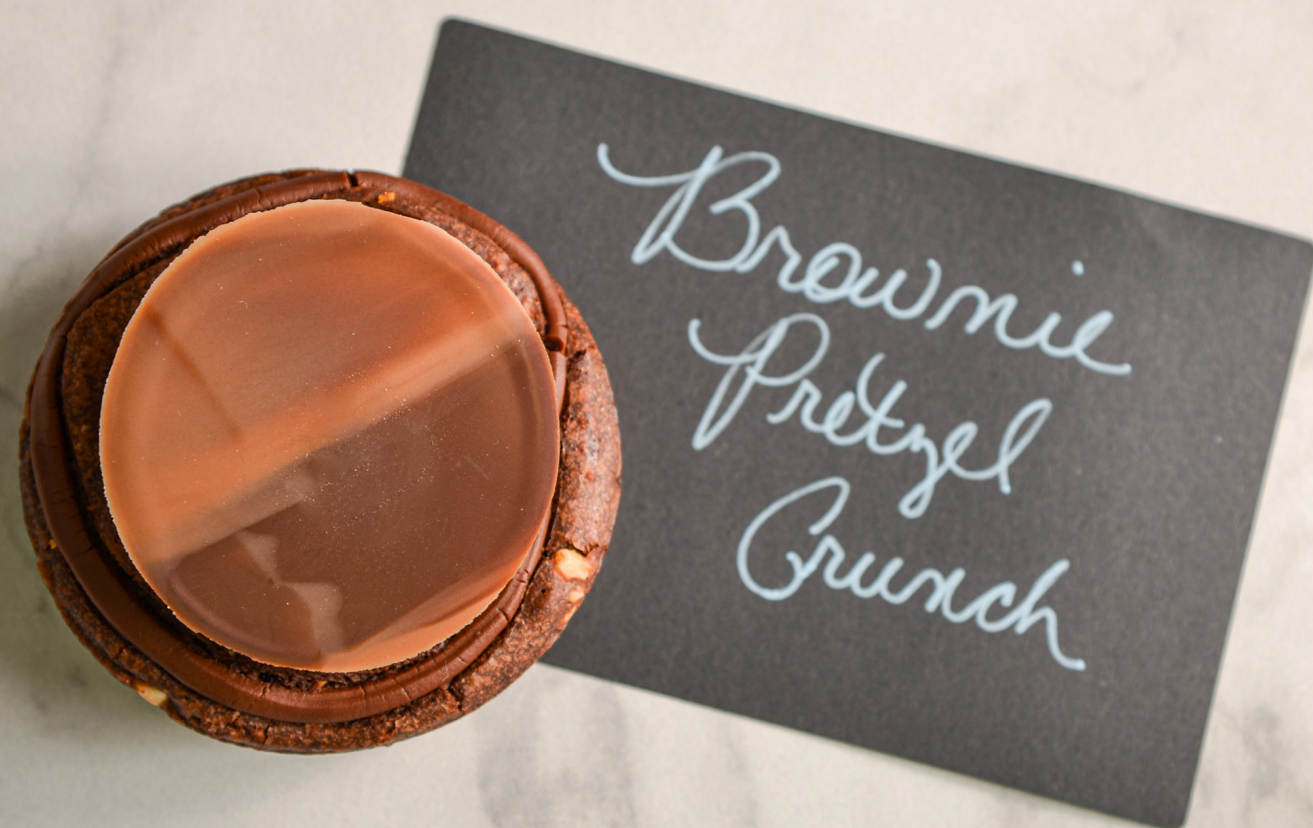 Brownie
Pretzel
Crunch